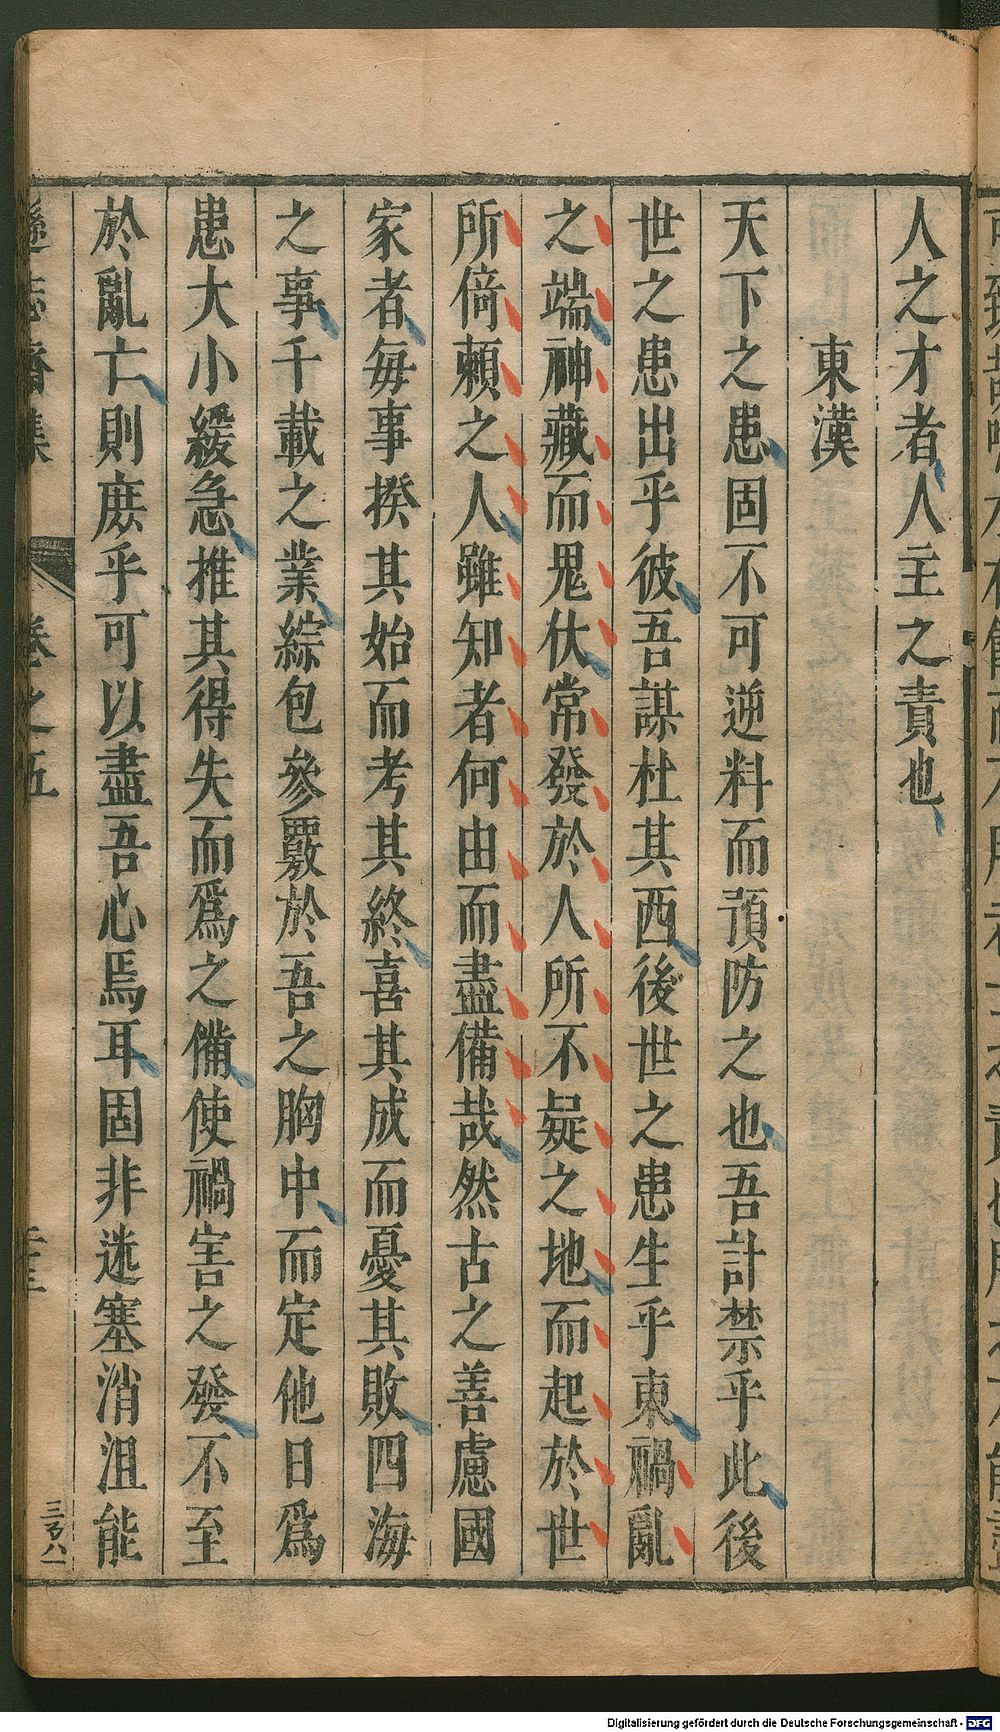 人之才者人主之責也
東漢
天下之患固不可逆料而預防之也吾計禁乎此後
世之患出乎彼吾謀杜其西後世之患生乎東禍亂
之端神藏而鬼伏常發於人所不疑之地而起於世
所倚賴之人雖知者何由而盡備哉然古之善慮國
家者每事揆其始而考其終喜其成而憂其敗四海
之事千載之業綜包參覈於吾之胸中而定他日為
患大小緩急推其得失而為之備使禍害之發不至
於亂亡則庶乎可以盡吾心焉耳固非迷塞消沮能
遜志齋集 卷之五
Digitalisierung gefördert durch die Deutsche Forschungsgemeinschaft - DFG